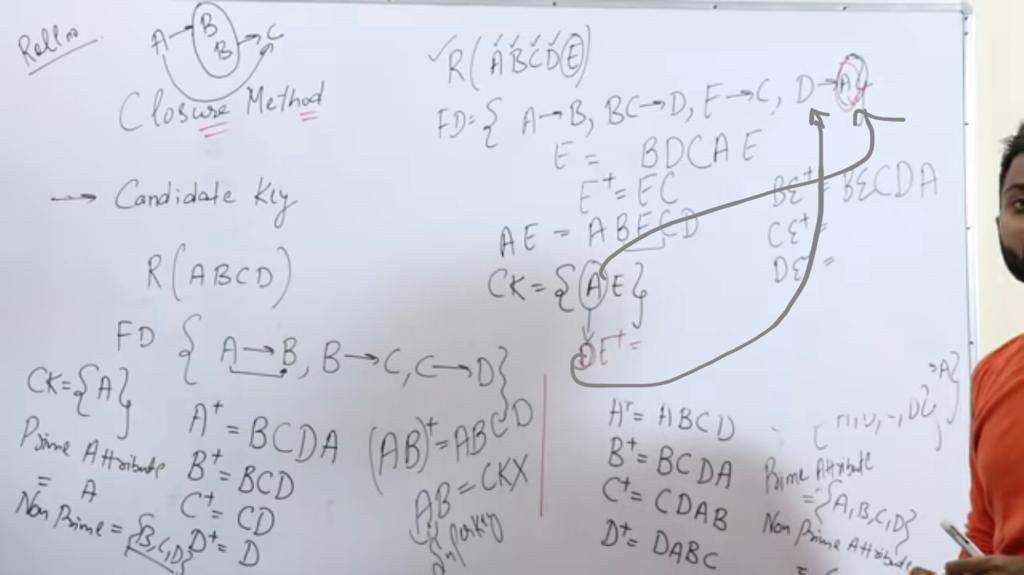 Roll no
A → B
B → C
Closure Method
→ Candidate Key
R(ABCD)
FD { A → B, B → C, C → D}
CK = {A}
Prime Attribute
= A
Non Prime = {B,C,D}
A⁺ = BCDA
B⁺ = BCD
C⁺ = CD
D⁺ = D
(AB)⁺ = ABCD
AB = CKX
✓R(ABCDE)
FD = { A → B, BC → D, E → C, D → A
E = BDCAE
E⁺ = EC
AE = ABECD
CK = {AE}
DE⁺ =
BE⁺ = BECDA
CE⁺ =
DE⁺ =
A⁺ = ABCD
B⁺ = BCDA
C⁺ = CDAB
D⁺ = DABC
→A}
Prime Attribute
= {A,B,C,D}
Non Prime Attribute